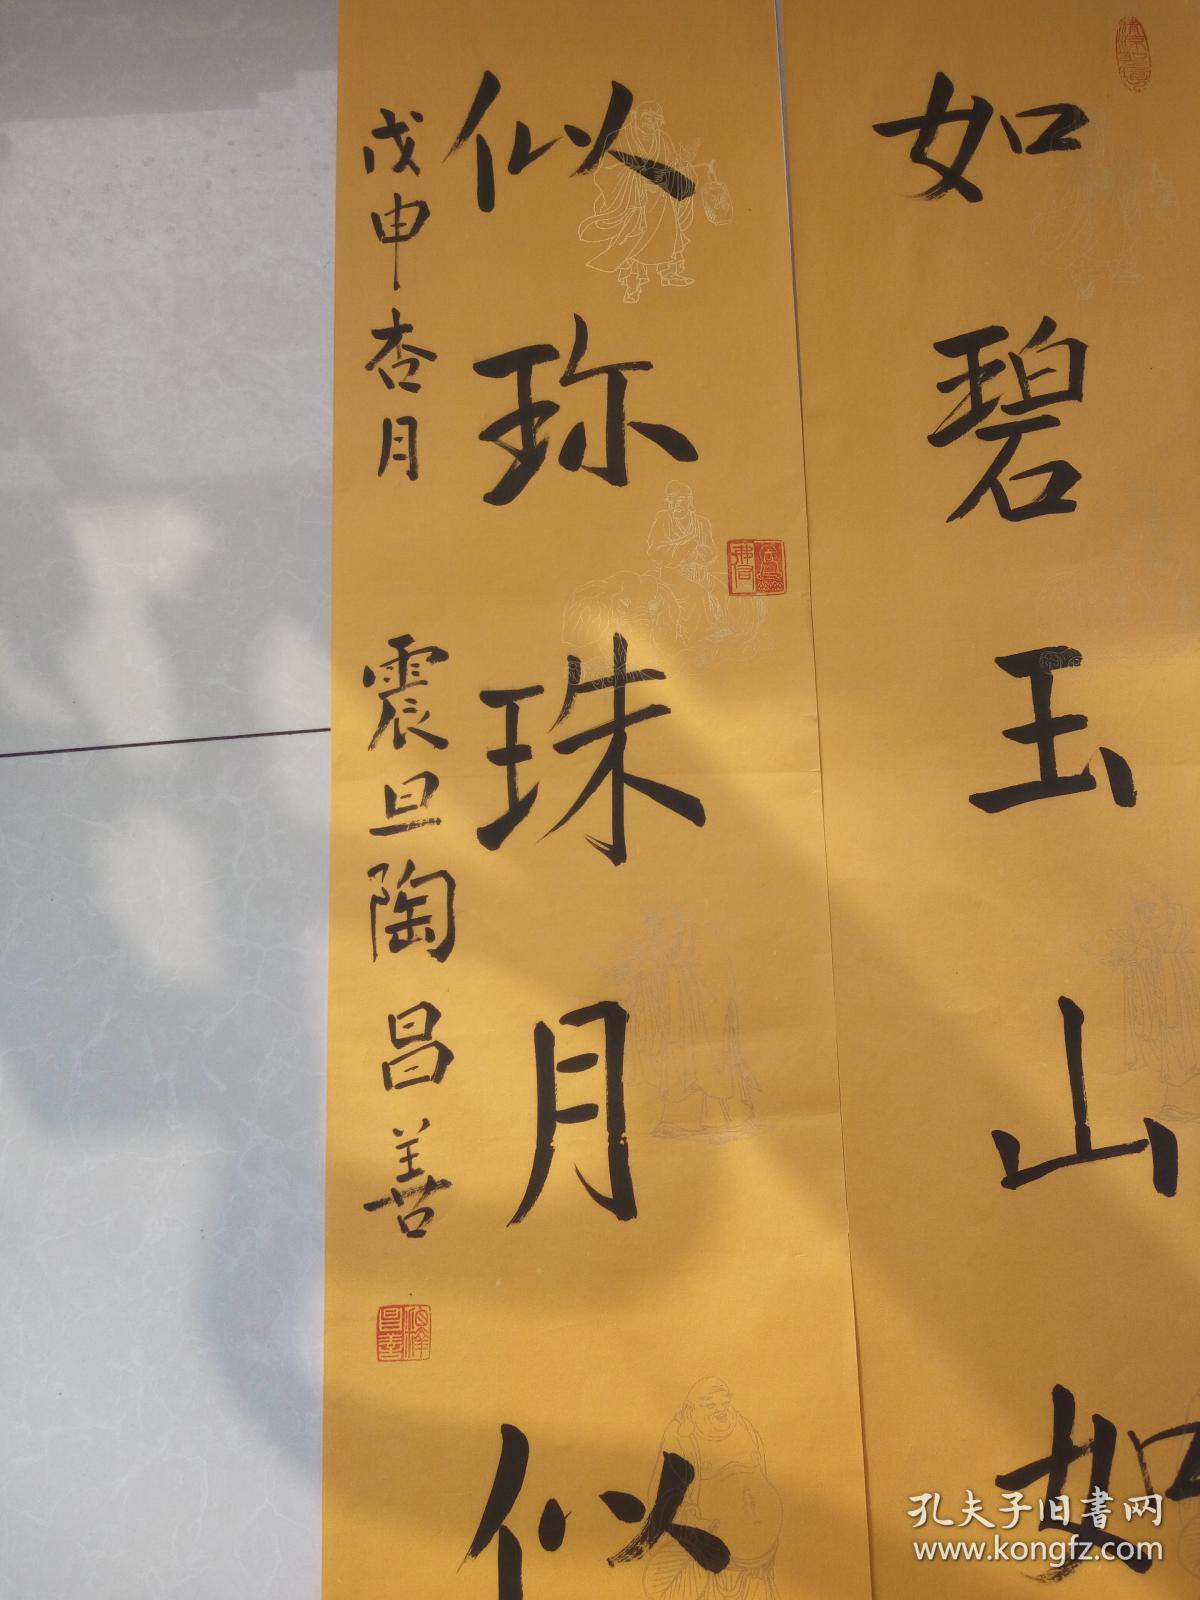 如碧玉山如
似珍珠月似
戊申杏月 震旦陶昌善
昌善
佛
孔夫子旧書网
www.kongfz.com